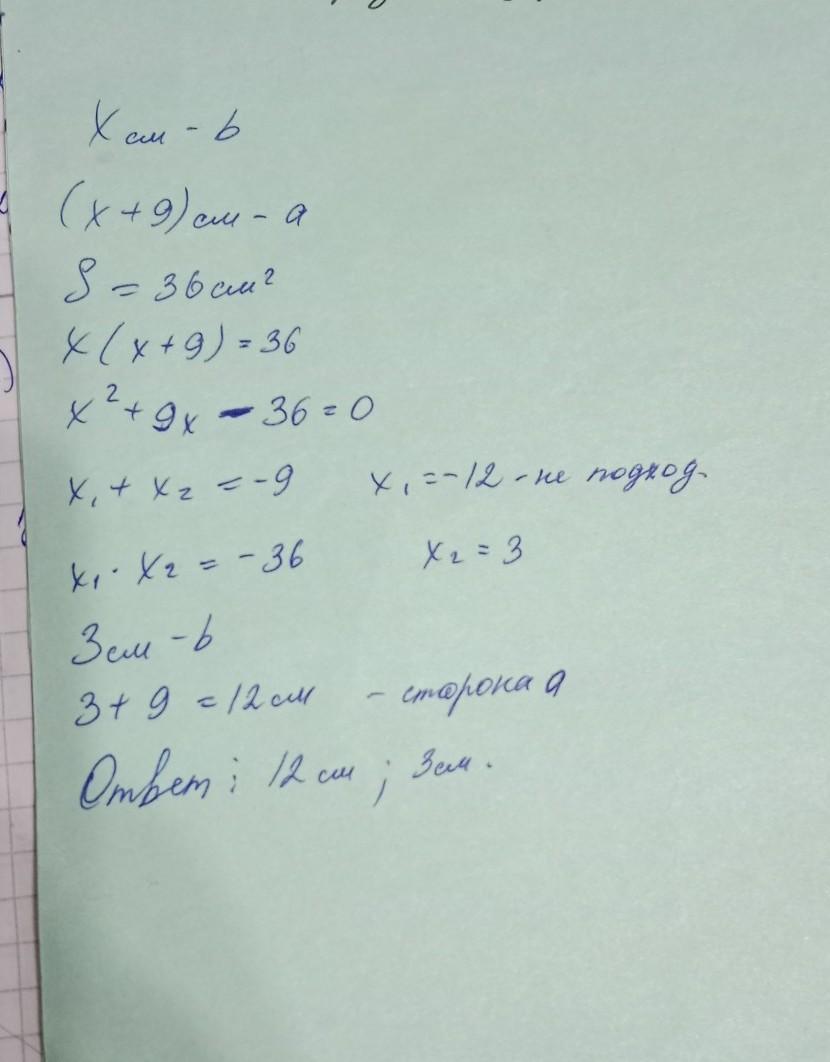 X см - b
(x+9) см - a
S = 36 см²
x(x+9) = 36
x² + 9x - 36 = 0
x₁ + x₂ = -9 x₁ = -12 - не подход.
x₁ · x₂ = -36 x₂ = 3
3 см - b
3 + 9 = 12 см - сторона a
Ответ: 12 см; 3 см.